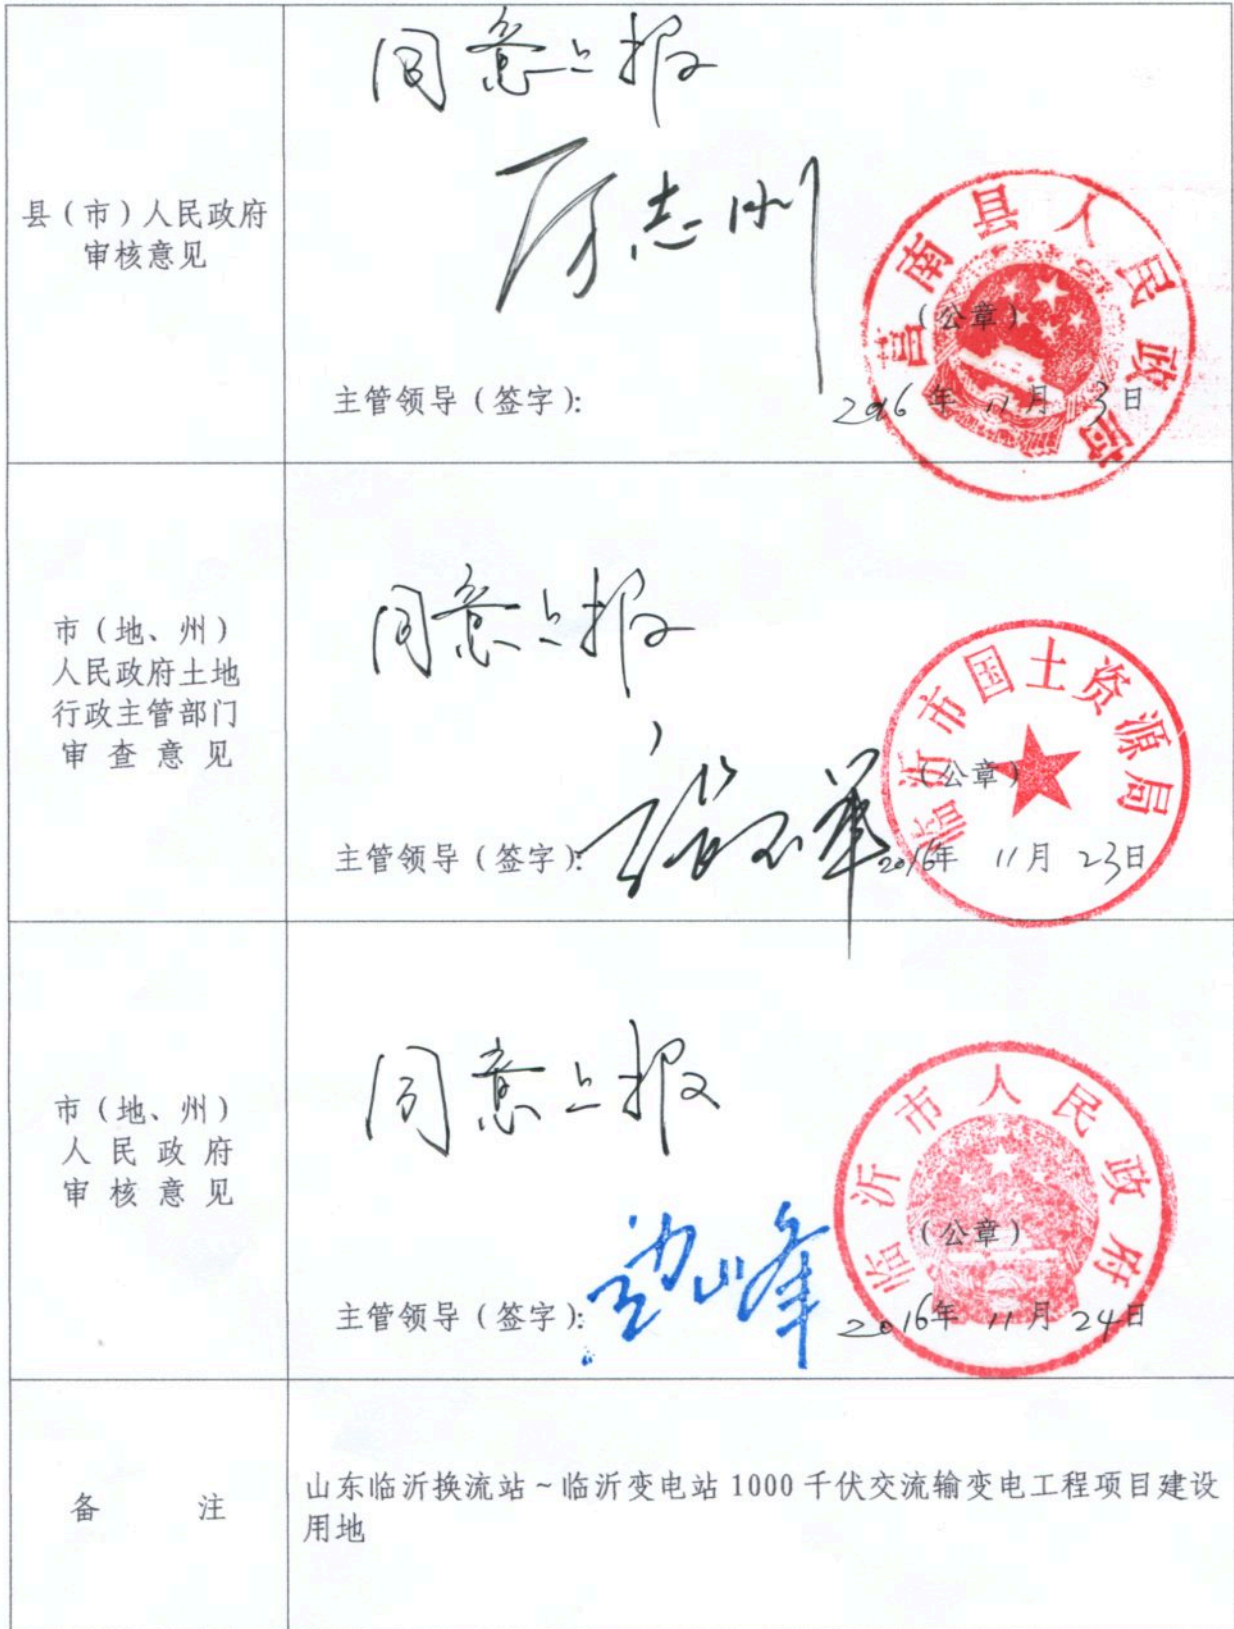 县（市）人民政府
审核意见
同意上报
厉志刚
莒南县人民政府
（公章）
主管领导（签字）：
2016年 11月 3日
市（地、州）
人民政府土地
行政主管部门
审 查 意 见
同意上报
临沂市国土资源局
（公章）
主管领导（签字）：
2016年 11月 23日
市（地、州）
人 民 政 府
审 核 意 见
同意上报
临沂市人民政府
（公章）
主管领导（签字）：
2016年 11月 24日
备 注
山东临沂换流站~临沂变电站 1000 千伏交流输变电工程项目建设
用地